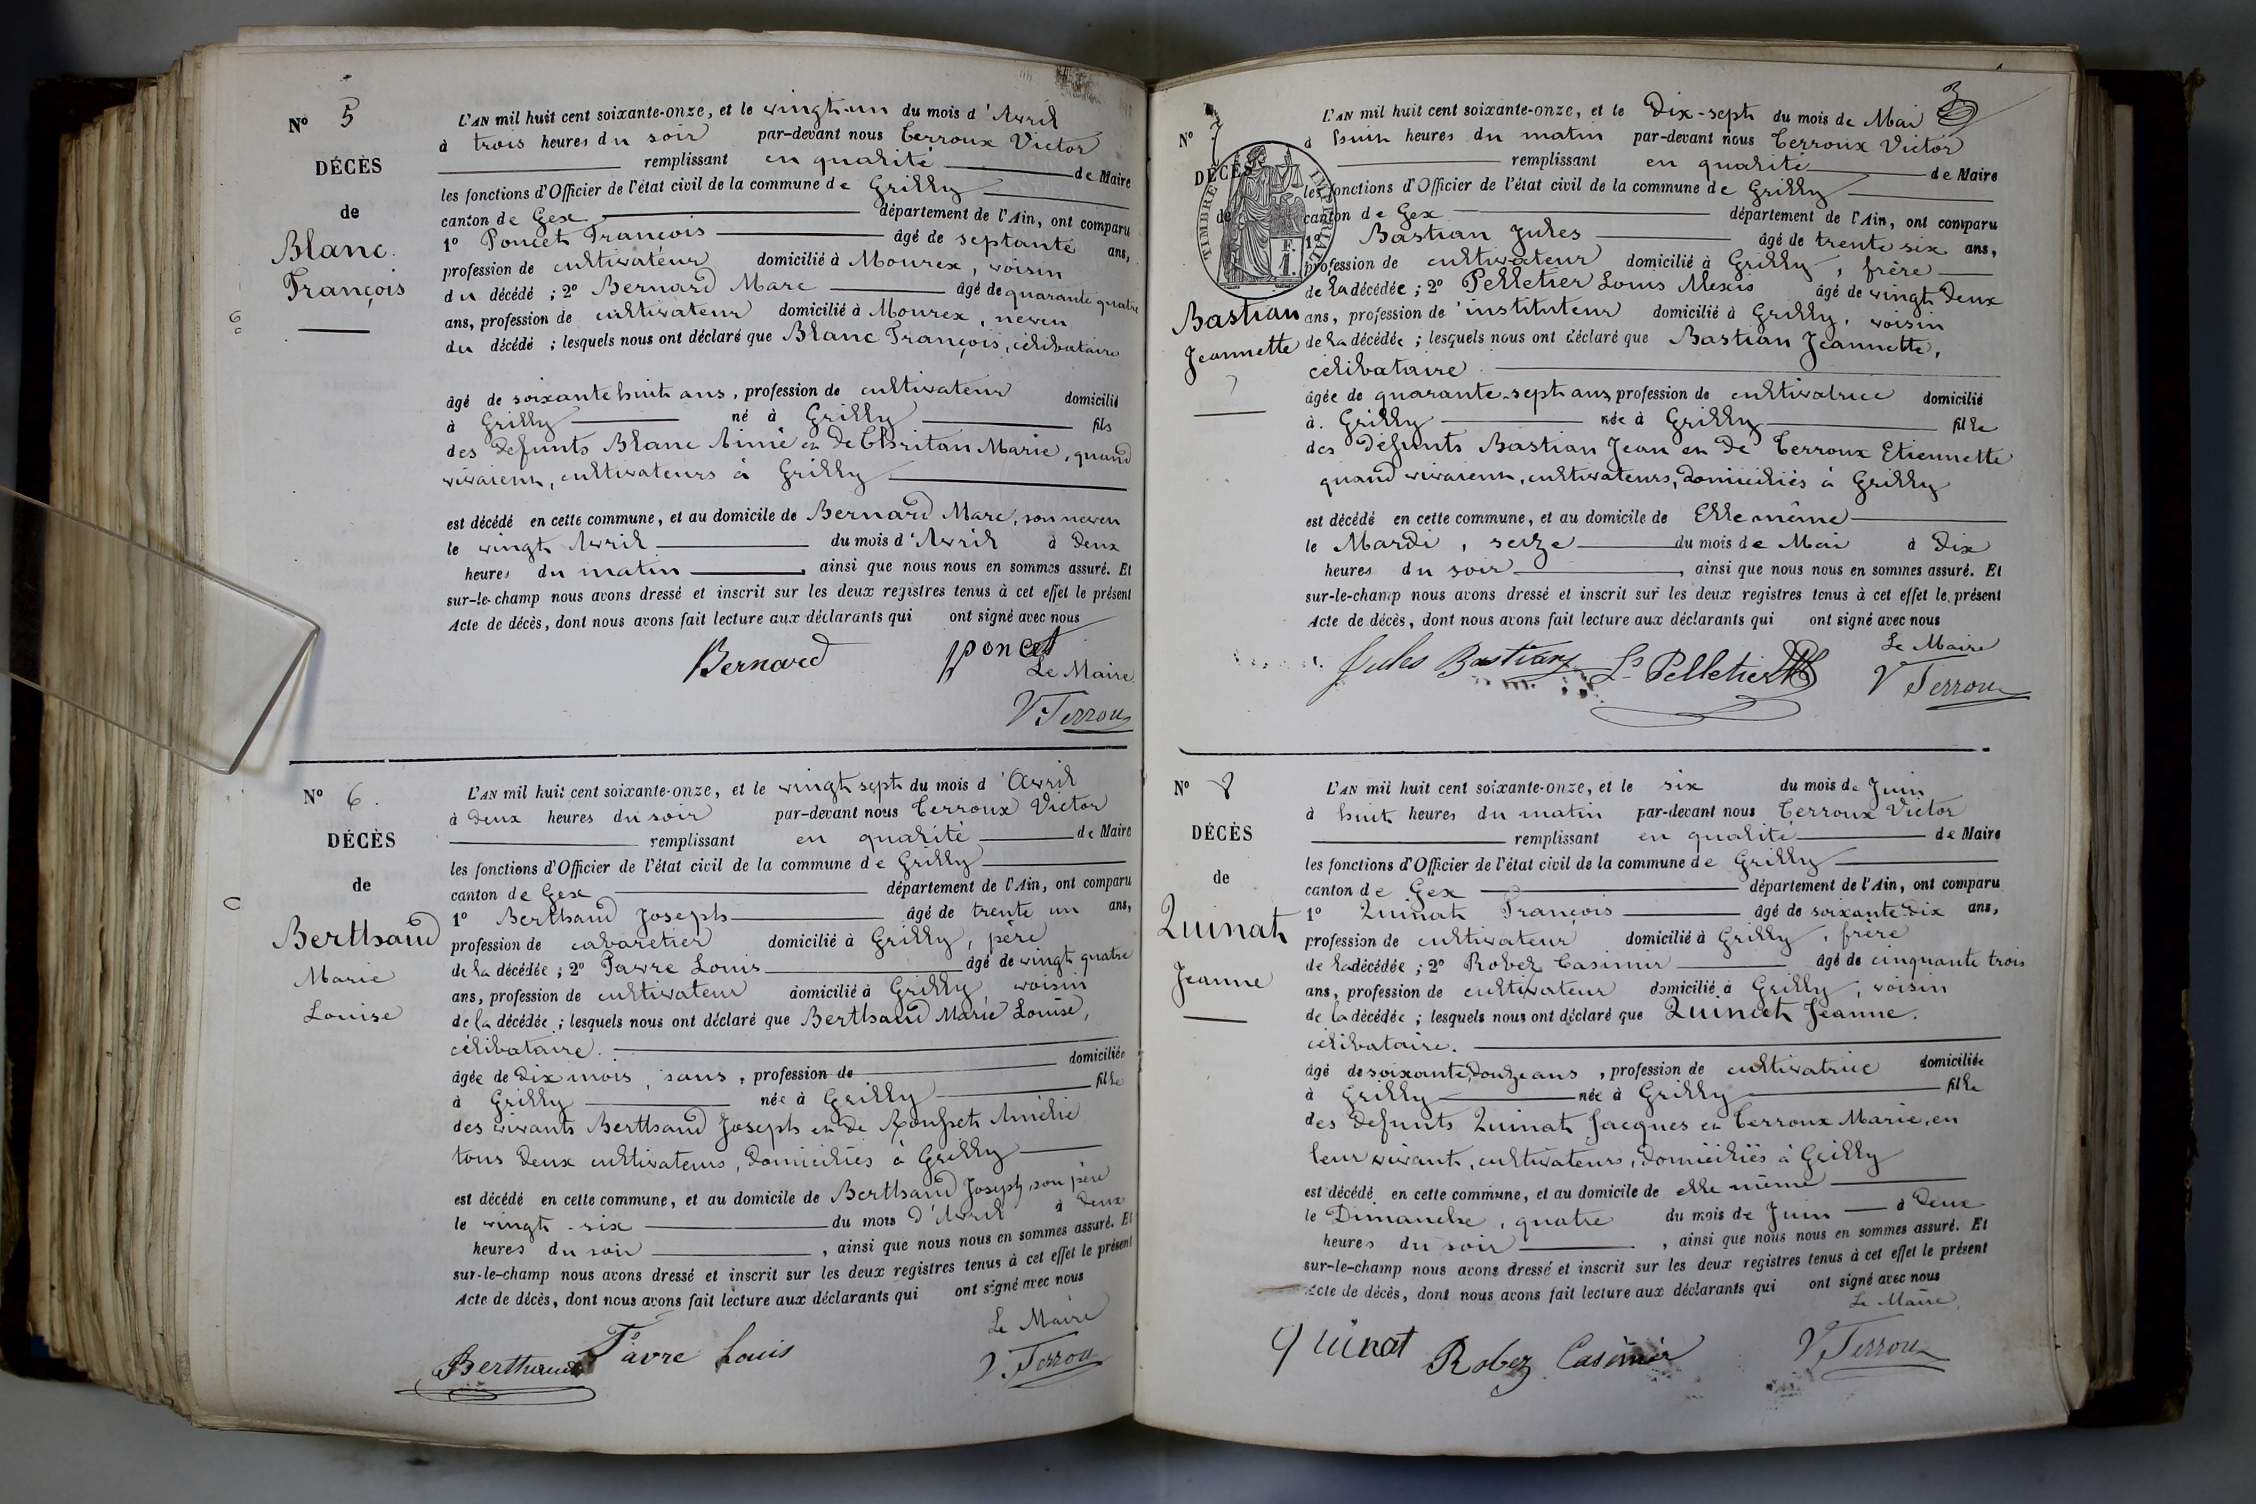 N° 5
DÉCÈS
de
Blanc
François
L'AN mil huit cent soixante-onze, et le vingt-un du mois d'Avril
à trois heures du soir par-devant nous Terroux Victor
remplissant en qualité de Maire
les fonctions d'Officier de l'état civil de la commune de Grilly
canton de Gex département de l'Ain, ont comparu
1° Poncet François âgé de septante ans,
profession de cultivateur domicilié à Mourex, voisin
du décédé ; 2° Bernard Marc âgé de quarante quatre
ans, profession de cultivateur domicilié à Mourex, neveu
du décédé ; lesquels nous ont déclaré que Blanc François, célibataire
âgé de soixante huit ans, profession de cultivateur domicilié
à Grilly né à Grilly fils
des défunts Blanc Aimé et de Chritan Marie, quand
vivaient, cultivateurs à Grilly
est décédé en cette commune, et au domicile de Bernard Marc, son neveu
le vingt Avril du mois d'Avril à deux
heures du matin, ainsi que nous nous en sommes assuré. Et
sur-le-champ nous avons dressé et inscrit sur les deux registres tenus à cet effet le présent
Acte de décès, dont nous avons fait lecture aux déclarants qui ont signé avec nous
Bernard poncet
Le Maire
V. Terroux
N° 6.
DÉCÈS
de
Berthaud
Marie
Louise
L'AN mil huit cent soixante-onze, et le vingt sept du mois d'Avril
à deux heures du soir par-devant nous Terroux Victor
remplissant en qualité de Maire
les fonctions d'Officier de l'état civil de la commune de Grilly
canton de Gex département de l'Ain, ont comparu
1° Berthaud Joseph âgé de trente un ans,
profession de cabaretier domicilié à Grilly, père
de la décédée ; 2° Favre Louis âgé de vingt quatre
ans, profession de cultivateur domicilié à Grilly voisin
de la décédée ; lesquels nous ont déclaré que Berthaud Marie Louise,
célibataire.
âgée de dix mois, sans, profession de domiciliée
à Grilly née à Grilly fille
des vivants Berthaud Joseph et de Rousset Amélie
tous deux cultivateurs, domiciliés à Grilly
est décédé en cette commune, et au domicile de Berthaud Joseph, son père
le vingt-six du mois d'Avril à deux
heures du soir, ainsi que nous nous en sommes assuré. Et
sur-le-champ nous avons dressé et inscrit sur les deux registres tenus à cet effet le présent
Acte de décès, dont nous avons fait lecture aux déclarants qui ont signé avec nous
Le Maire
Berthaud Favre Louis V. Terroux
3
N° 7
DÉCÈS
de
TIMBRE IMPERIAL
Bastian
Jeannette
L'AN mil huit cent soixante-onze, et le Dix-sept du mois de Mai
à huit heures du matin par-devant nous Terroux Victor
remplissant en qualité de Maire
les fonctions d'Officier de l'état civil de la commune de Grilly
canton de Gex département de l'Ain, ont comparu
1° Bastian Jules âgé de trente six ans,
profession de cultivateur domicilié à Grilly, frère
de la décédée ; 2° Pelletier Louis Alexis âgé de vingt deux
ans, profession d'instituteur domicilié à Grilly, voisin
de la décédée ; lesquels nous ont déclaré que Bastian Jeannette,
célibataire
âgée de quarante-sept ans, profession de cultivatrice domicilié
à Grilly née à Grilly fille
des défunts Bastian Jean et de Terroux Etiennette
quand vivaient, cultivateurs, domiciliés à Grilly
est décédé en cette commune, et au domicile de Elle même
le Mardi, seize du mois de Mai à dix
heures du soir, ainsi que nous nous en sommes assuré. Et
sur-le-champ nous avons dressé et inscrit sur les deux registres tenus à cet effet le présent
Acte de décès, dont nous avons fait lecture aux déclarants qui ont signé avec nous
Le Maire
Jules Bastian Ls Pelletier V Terroux
N° 8
DÉCÈS
de
Quinat
Jeanne
L'AN mil huit cent soixante-onze, et le six du mois de Juin
à huit heures du matin par-devant nous Terroux Victor
remplissant en qualité de Maire
les fonctions d'Officier de l'état civil de la commune de Grilly
canton de Gex département de l'Ain, ont comparu
1° Quinat François âgé de soixante dix ans,
profession de cultivateur domicilié à Grilly, frère
de la décédée ; 2° Robez Casimir âgé de cinquante trois
ans, profession de cultivateur domicilié à Grilly, voisin
de la décédée ; lesquels nous ont déclaré que Quinat Jeanne.
célibataire.
âgé de soixante douze ans, profession de cultivatrice domiciliée
à Grilly née à Grilly fille
des défunts Quinat Jacques et Terroux Marie, en
leur vivant, cultivateurs, domiciliés à Grilly
est décédé en cette commune, et au domicile de elle même
le Dimanche, quatre du mois de Juin à deux
heures du soir, ainsi que nous nous en sommes assuré. Et
sur-le-champ nous avons dressé et inscrit sur les deux registres tenus à cet effet le présent
Acte de décès, dont nous avons fait lecture aux déclarants qui ont signé avec nous
Le Maire
quinat Robez Casimir V. Terroux